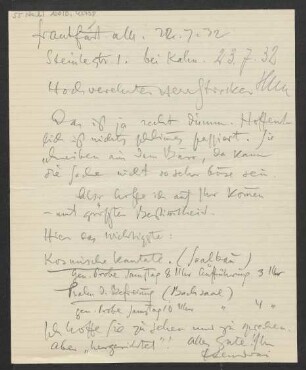 Frankfurt a/M. 22.7.32
Steinlestr 1. bei Kahn. 23.7.32
Hochverehrter Herr
Das ist ja recht dumm. Hoffent-
lich ist nichts schlimmes passiert. Sie
schreiben aus dem Büro, da kann
die Sache nicht so sehr böse sein
Also hoffe ich auf Ihr Kommen
- mit größter Bestimmtheit.
Hier das wichtigste:
Kosmische Kantate. (Saalbau)
Gen. Probe Samstag 8 Uhr Aufführung 8 Uhr
Psalm d. Befreiung (Bachsaal)
gen. Probe Samstag 10 Uhr " 4 "
Ich hoffe Sie zu sehen und zu sprechen.
Aber "ausgerüstet"! Alles Gute Ihr